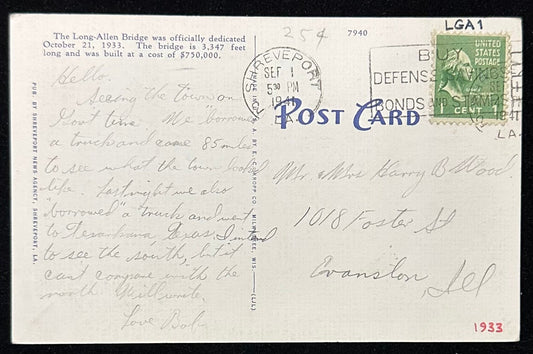 LGA1
25¢
The Long-Allen Bridge was officially dedicated
October 21, 1933. The bridge is 3,347 feet
long and was built at a cost of $750,000.
7940
SHREVEPORT
SEP 1
5 30 PM
1941
LA.
BUY
DEFENSE SAVINGS
BONDS AND STAMPS
UNITED
STATES
POSTAGE
1 CENT
1941
LA.
POST CARD
Hello.
Seeing the town on
Govt time. We "borrowed"
a truck and came 85 miles
to see what the town looked
like. Last night we also
"borrowed" a truck and went
to Texarkana Texas. I intend
to see the south, but it
cant compare with the
north. Will write.
Love Bob.
Mr. Mrs Harry B Wood.
1018 Foster St
Evanston, Ill
PUB. BY SHREVEPORT NEWS AGENCY, SHREVEPORT, LA.
E. C. KROPP CO., MILWAUKEE, WIS.
1933